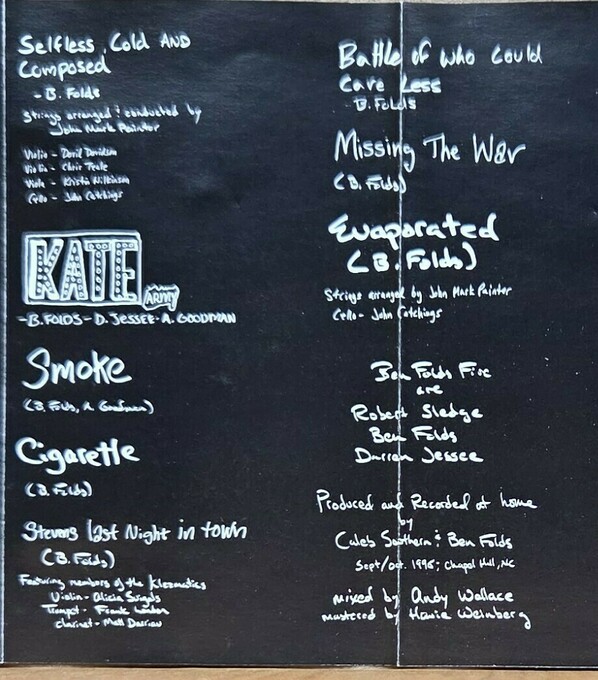 Selfless, Cold AND
Composed
- B. Folds
Strings arranged & conducted by
John Mark Painter
Violin - David Davidson
Violin - Chris Teale
Viola - Kristin Wilkinson
Cello - John Catchings
KATE
ARMY
- B. FOLDS - D. JESSEE - A. GOODMAN
Smoke
(B. Folds, A. Goodman)
Cigarette
(B. Folds)
Stevens last Night in town
(B. Folds)
Featuring members of the Klezmatics
Violin - Alicia Svigals
Trumpet - Frank London
Clarinet - Matt Darriau
Battle of who could
Care Less
- B. Folds
Missing The War
(B. Folds)
Evaporated
(B. Folds)
Strings arranged by John Mark Painter
Cello - John Catchings
Ben Folds Five
are
Robert Sledge
Ben Folds
Darren Jessee
Produced and Recorded at home
by
Caleb Southern & Ben Folds
Sept/oct. 1996; Chapel Hill, NC
mixed by Andy Wallace
mastered by Howie Weinberg